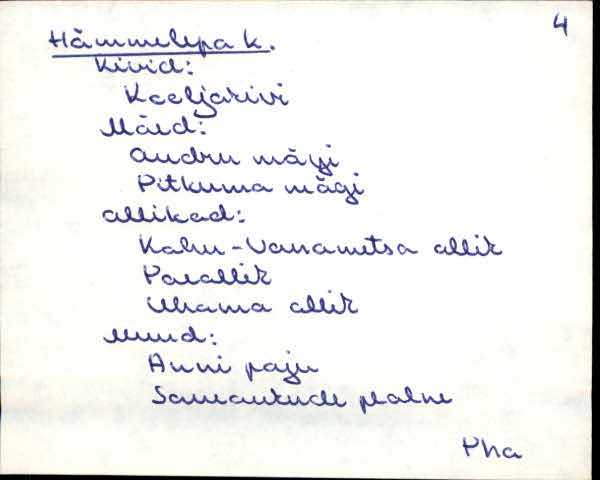 4
Hämmelepa k.
Kivid:
Koeljakivi
Mäed:
Andru mägi
Pitkuma mägi
Allikad:
Kahu-Vanametsa allik
Paeallik
Uhama allik
Muud:
Anni paju
Pha